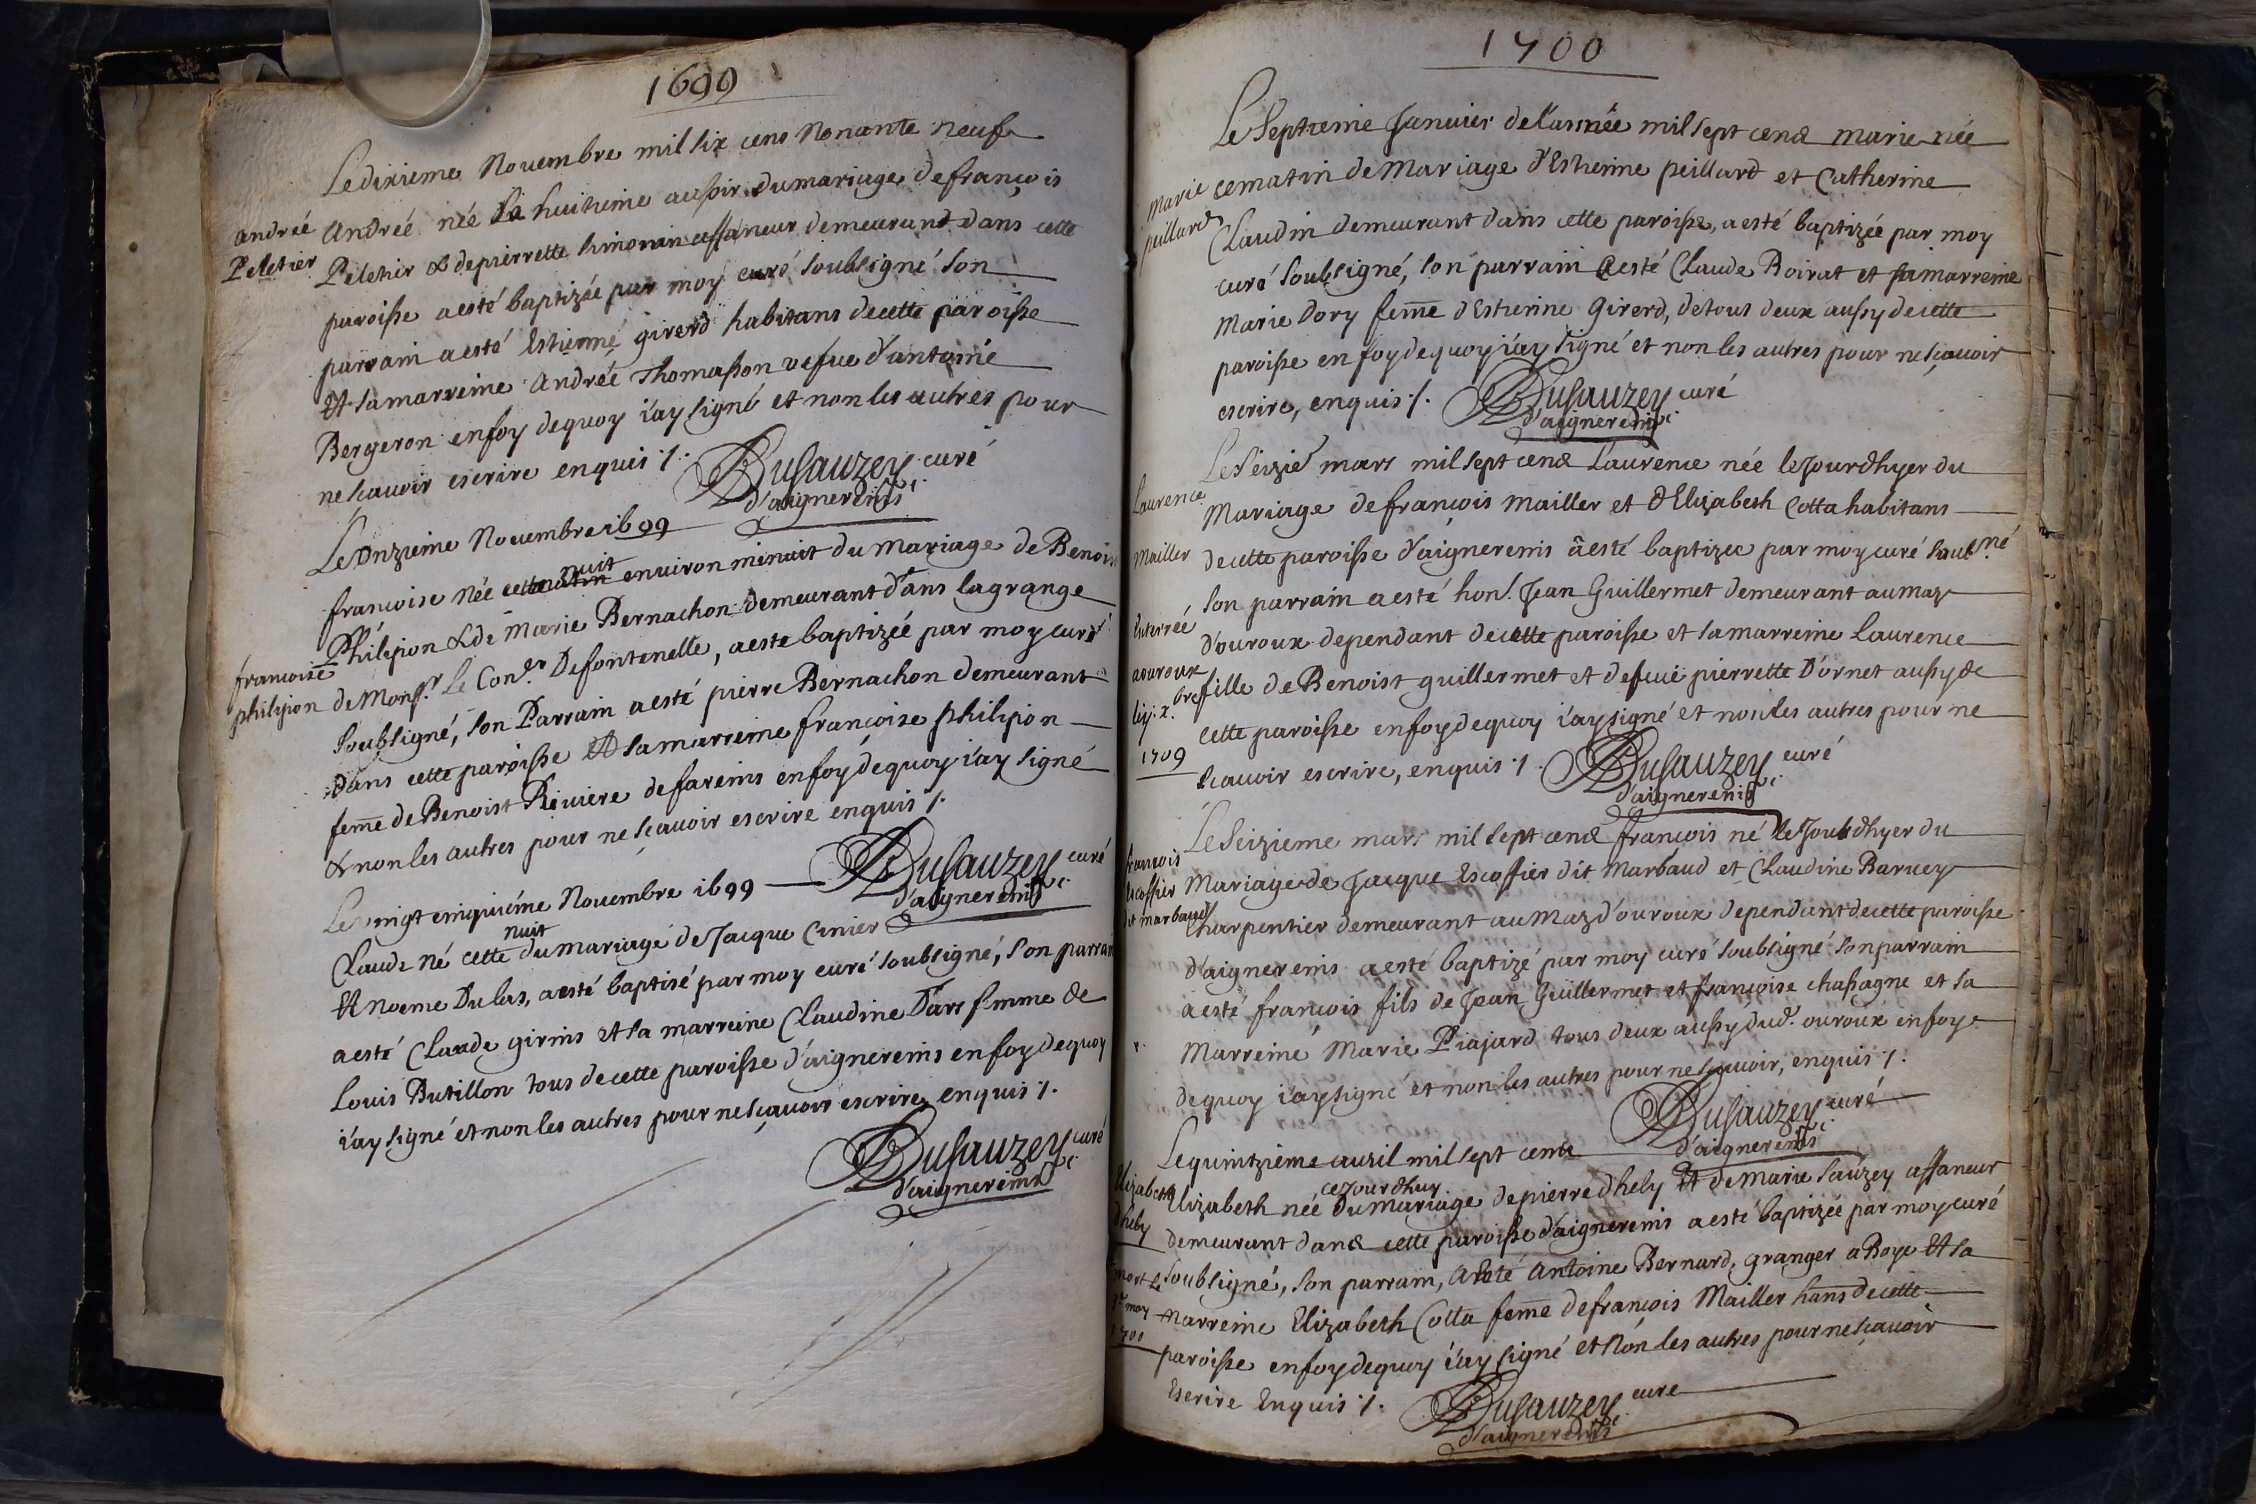 1699
Le dixieme Novembre mil six cens Nonante neuf
andrée
Peletier
Andrée née Le huitieme au soir du mariage de françois
Peletier & de pierrette Simonin affaneur demeurant dans cette
paroisse a esté baptizée par moy curé soubsigné son
parrain a esté Estienne girerd habitans de cette paroisse
Et sa marreine Andrée Thomasson vefue d'antoine
Bergeron en foy dequoy i'ay signé et non les autres pour
ne sçauoir escrire enquis /.
DuSauzey curé
d'aignereins
Le Onzieme Nouembre 1699
francoise Née cette nuit enuiron minuit du Mariage de Benoist
francoise
philipon
Philipon & de Marie Bernachon demeurant dans la grange
de Monsr. Le Coner. De fontenelle, a este baptizéé par moy curé
soubsigné, son Parrain a esté pierre Bernachon demeurant
dans cette paroisse Et sa marreine françoise philipon
feme de Benoist Riviere de fareins en foy dequoy i'ay signé
& non les autres pour ne sçauoir escrire enquis /.
DuSauzey curé
d'aignereins
Le vingt cinquiéme Nouembre 1699
Claude né cette nuit du mariage de Jacque Cinier
Et noeme Dulas, a esté baptisé par moy curé soubsigné, son parrain
a esté Claude girins et sa marreine Claudine Dars femme de
Louis Butillon tous de cette paroisse d'aignereins en foy dequoy
i'ay signé et non les autres pour ne sçauoir escrire, enquis /.
DuSauzey curé
d'aignereins
1700
Le Septieme Januier de l'année mil sept cens marie née
marie
peillard
ce matin de Mariage d'Estienne peillard et Catherine
Claudin demeurant dans cette paroisse, a esté baptizée par moy
curé soubsigné, son parrain a esté Claude Boirat et sa marreine
Marie Dory feme d'Estienne Girerd, de tous deux aussy de cette
paroisse en foy dequoy i'ay signé et non les autres pour ne sçauoir
escrire, enquis /.
DuSauzey curé
d'aignereins
Le Seizie mars mil sept cens Laurence née le Jourdhyer du
Laurence
Mailler
Mariage de françois Mailler et d'Elizabeth Cotta habitans
de cette paroisse d'aignereins a esté baptizee par moy curé soubné
son parrain a esté hon. Jean Guillermet demeurant au maz
Enterrée
a ouroux
1709
d'ouroux dependant de cette paroisse et sa marreine Laurence
fille de Benoist guillermet et de fuë pierrette Dornet aussy de
cette paroisse en foy dequoy i'ay signé et non les autres pour ne
scauoir escrire, enquis /.
DuSauzey curé
d'aignereins
Le Seizieme mars mil sept cens françois né le Jourdhyer du
francois
Escoffier
dit marbaud
Mariage de Jacque Escoffier dit Marbaud et Claudine Baruey
Charpentier demeurant au Maz d'ouroux dependant de cette paroisse
d'aignereins a esté baptizé par moy curé soubsigné son parrain
a esté francois fils de Jean Guillermet et francoise chasagne et sa
Marreine Marie Piajard tous deux aussy dud. ouroux en foy
dequoy i'ay signé et non les autres pour ne sçauoir, enquis /.
DuSauzey curé
d'aignereins
Le quintzieme auril mil sept cens
Elizabeth
dhely
Elizabeth née ce Jourdhuy du mariage de pierre dhely Et de Marie sauzey affaneur
demeurant dans cette paroisse d'aignereins a esté baptizée par moy curé
mort le
moy
1700
soubsigné, son parrain, A esté Antoine Bernard, granger a Boye Et sa
Marreine Elizabeth Cotta feme de francois Mailler hans de cette
paroisse en foy dequoy i'ay signé et non les autres pour ne sçauoir
Escrire Enquis /.
DuSauzey cure
d'aignereins